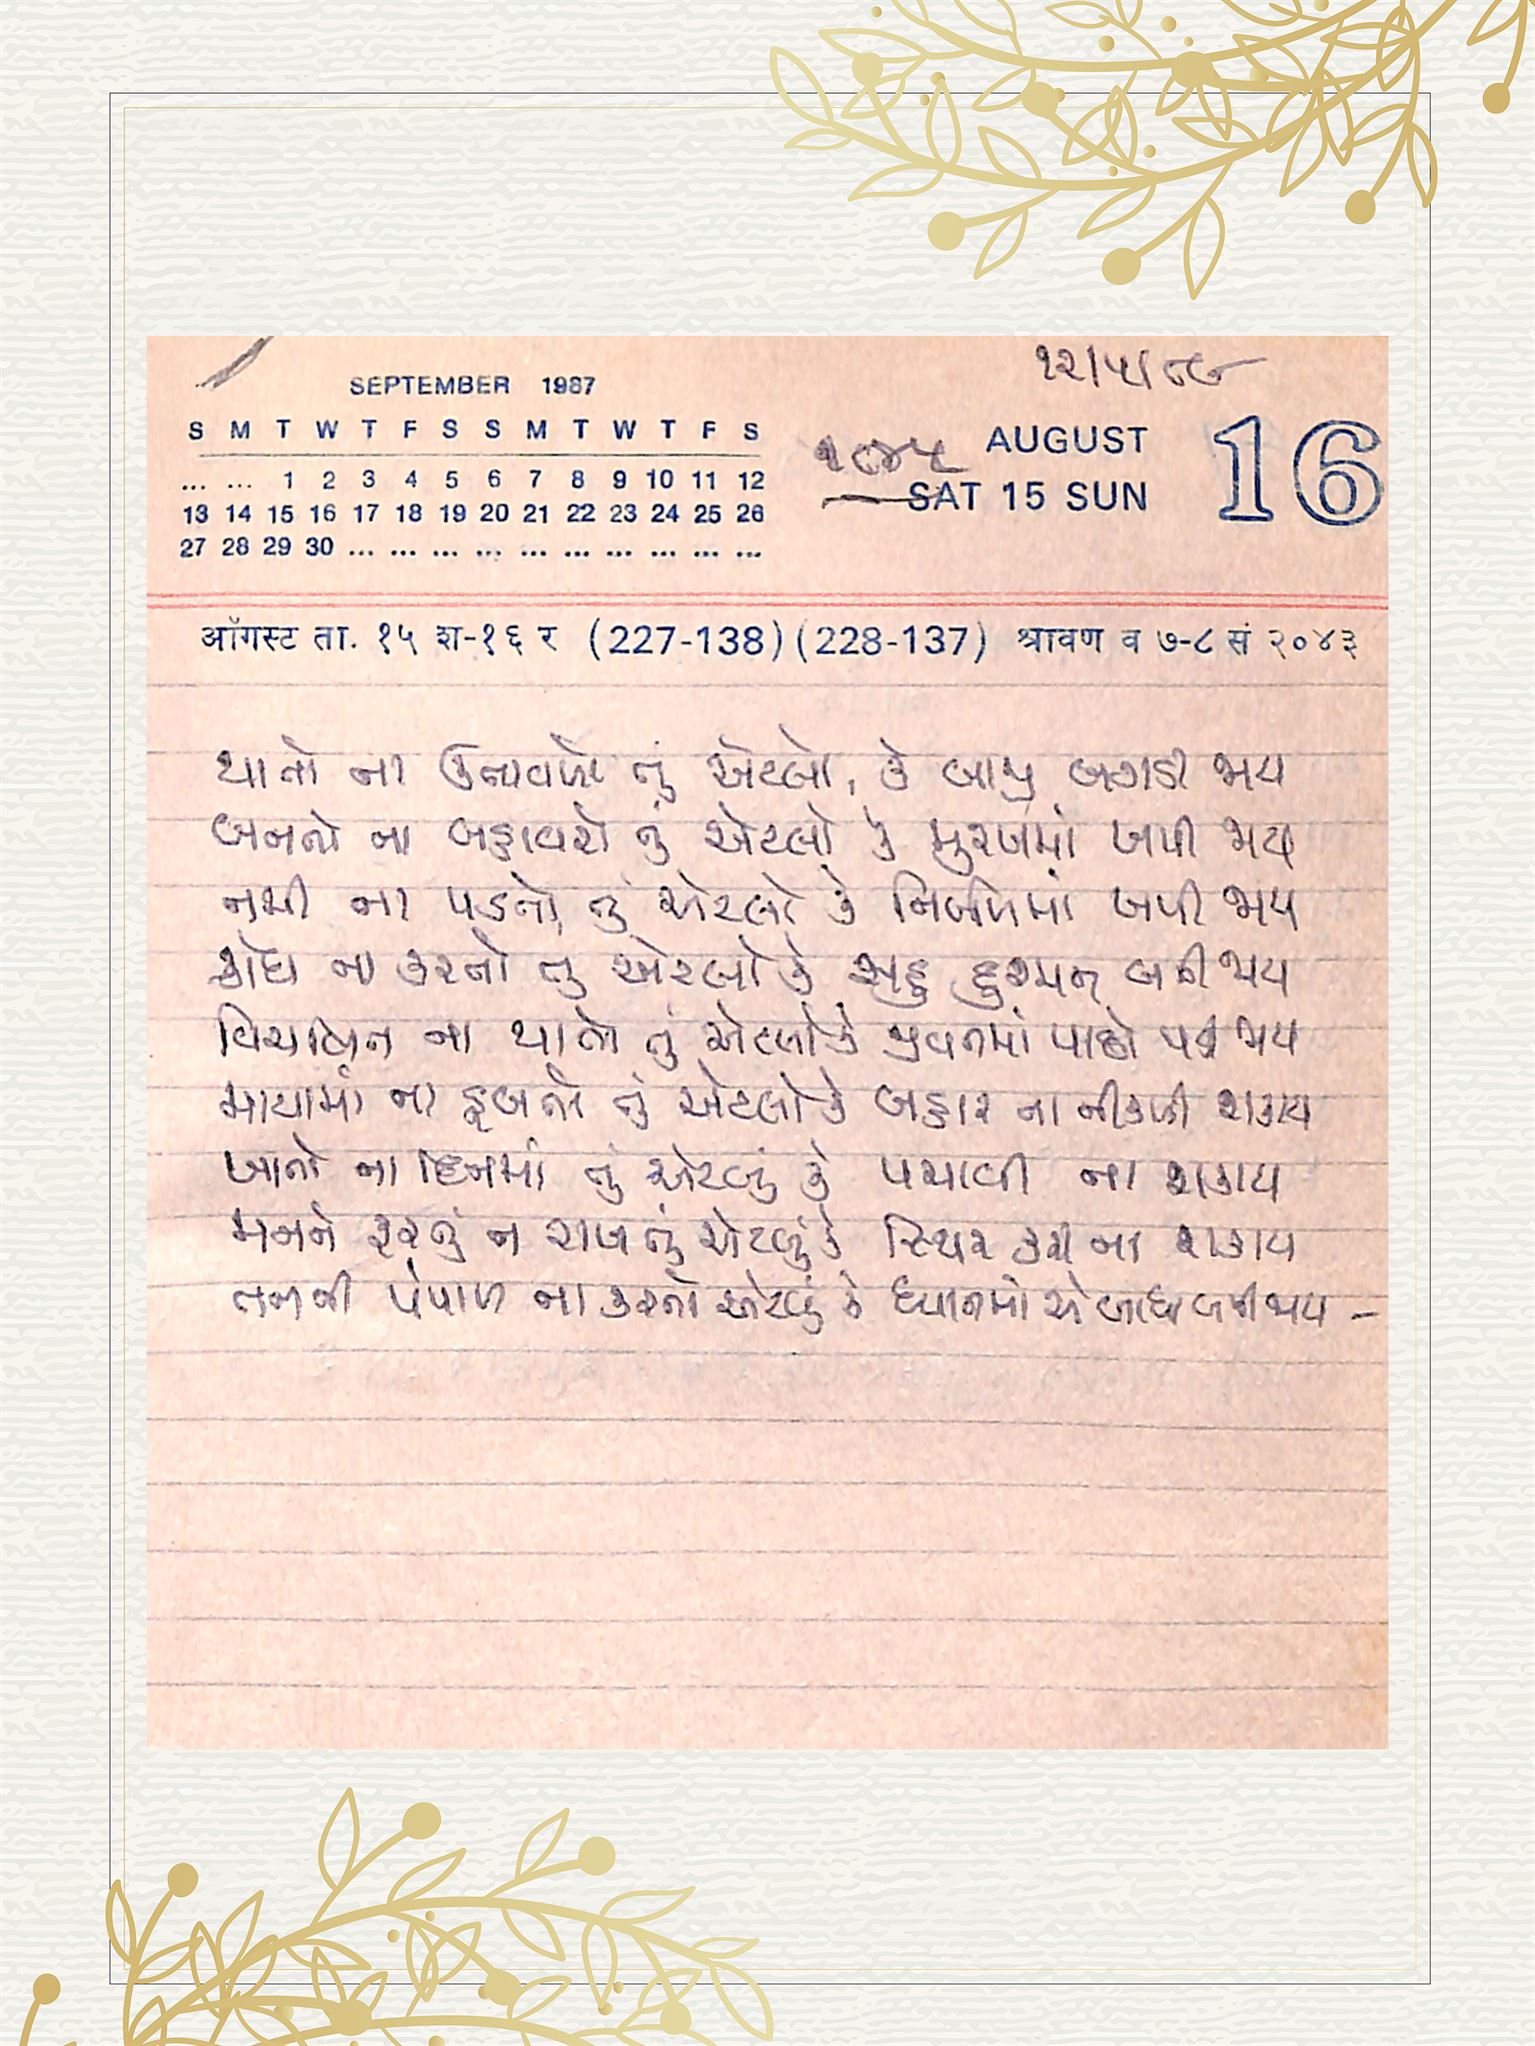 ૧૨/૫/૮૯
SEPTEMBER 1987
S M T W T F S S M T W T F S
... ... 1 2 3 4 5 6 7 8 9 10 11 12
13 14 15 16 17 18 19 20 21 22 23 24 25 26
27 28 29 30 ... ... ... ... ... ... ... ... ... ...
AUGUST
SAT 15 SUN
16
ऑगस्ट ता. १५ श-१६ र (227-138) (228-137) श्रावण व ७-८ सं २०४३
થાતો ના ઉતાવળો તું એટલો, કે બાજી બગડી જાય
બનતો ના બહાવરો તું એટલો કે મુરખમાં ખપી જાય
નમી ના પડતો તું એટલો કે નિર્બળમાં ખપી જાય
ક્રોધ ના કરતો તુ એટલો કે સહુ દુશ્મન બની જાય
વિચલિત ના થાતો તું એટલો કે જીવનમાં પાછો પડી જાય
માયામાં ના ડૂબતો તું એટલો કે બહાર ના નીકળી શકાય
ખાતો ના દિનમાં તું એટલું કે પચાવી ના શકાય
મનને ફરતું ન રાખ તું એટલું કે સ્થિર કરી ના શકાય
તનની પંપાળ ના કરતો એટલું કે ધ્યાનમાં એ બાધા બની જાય –